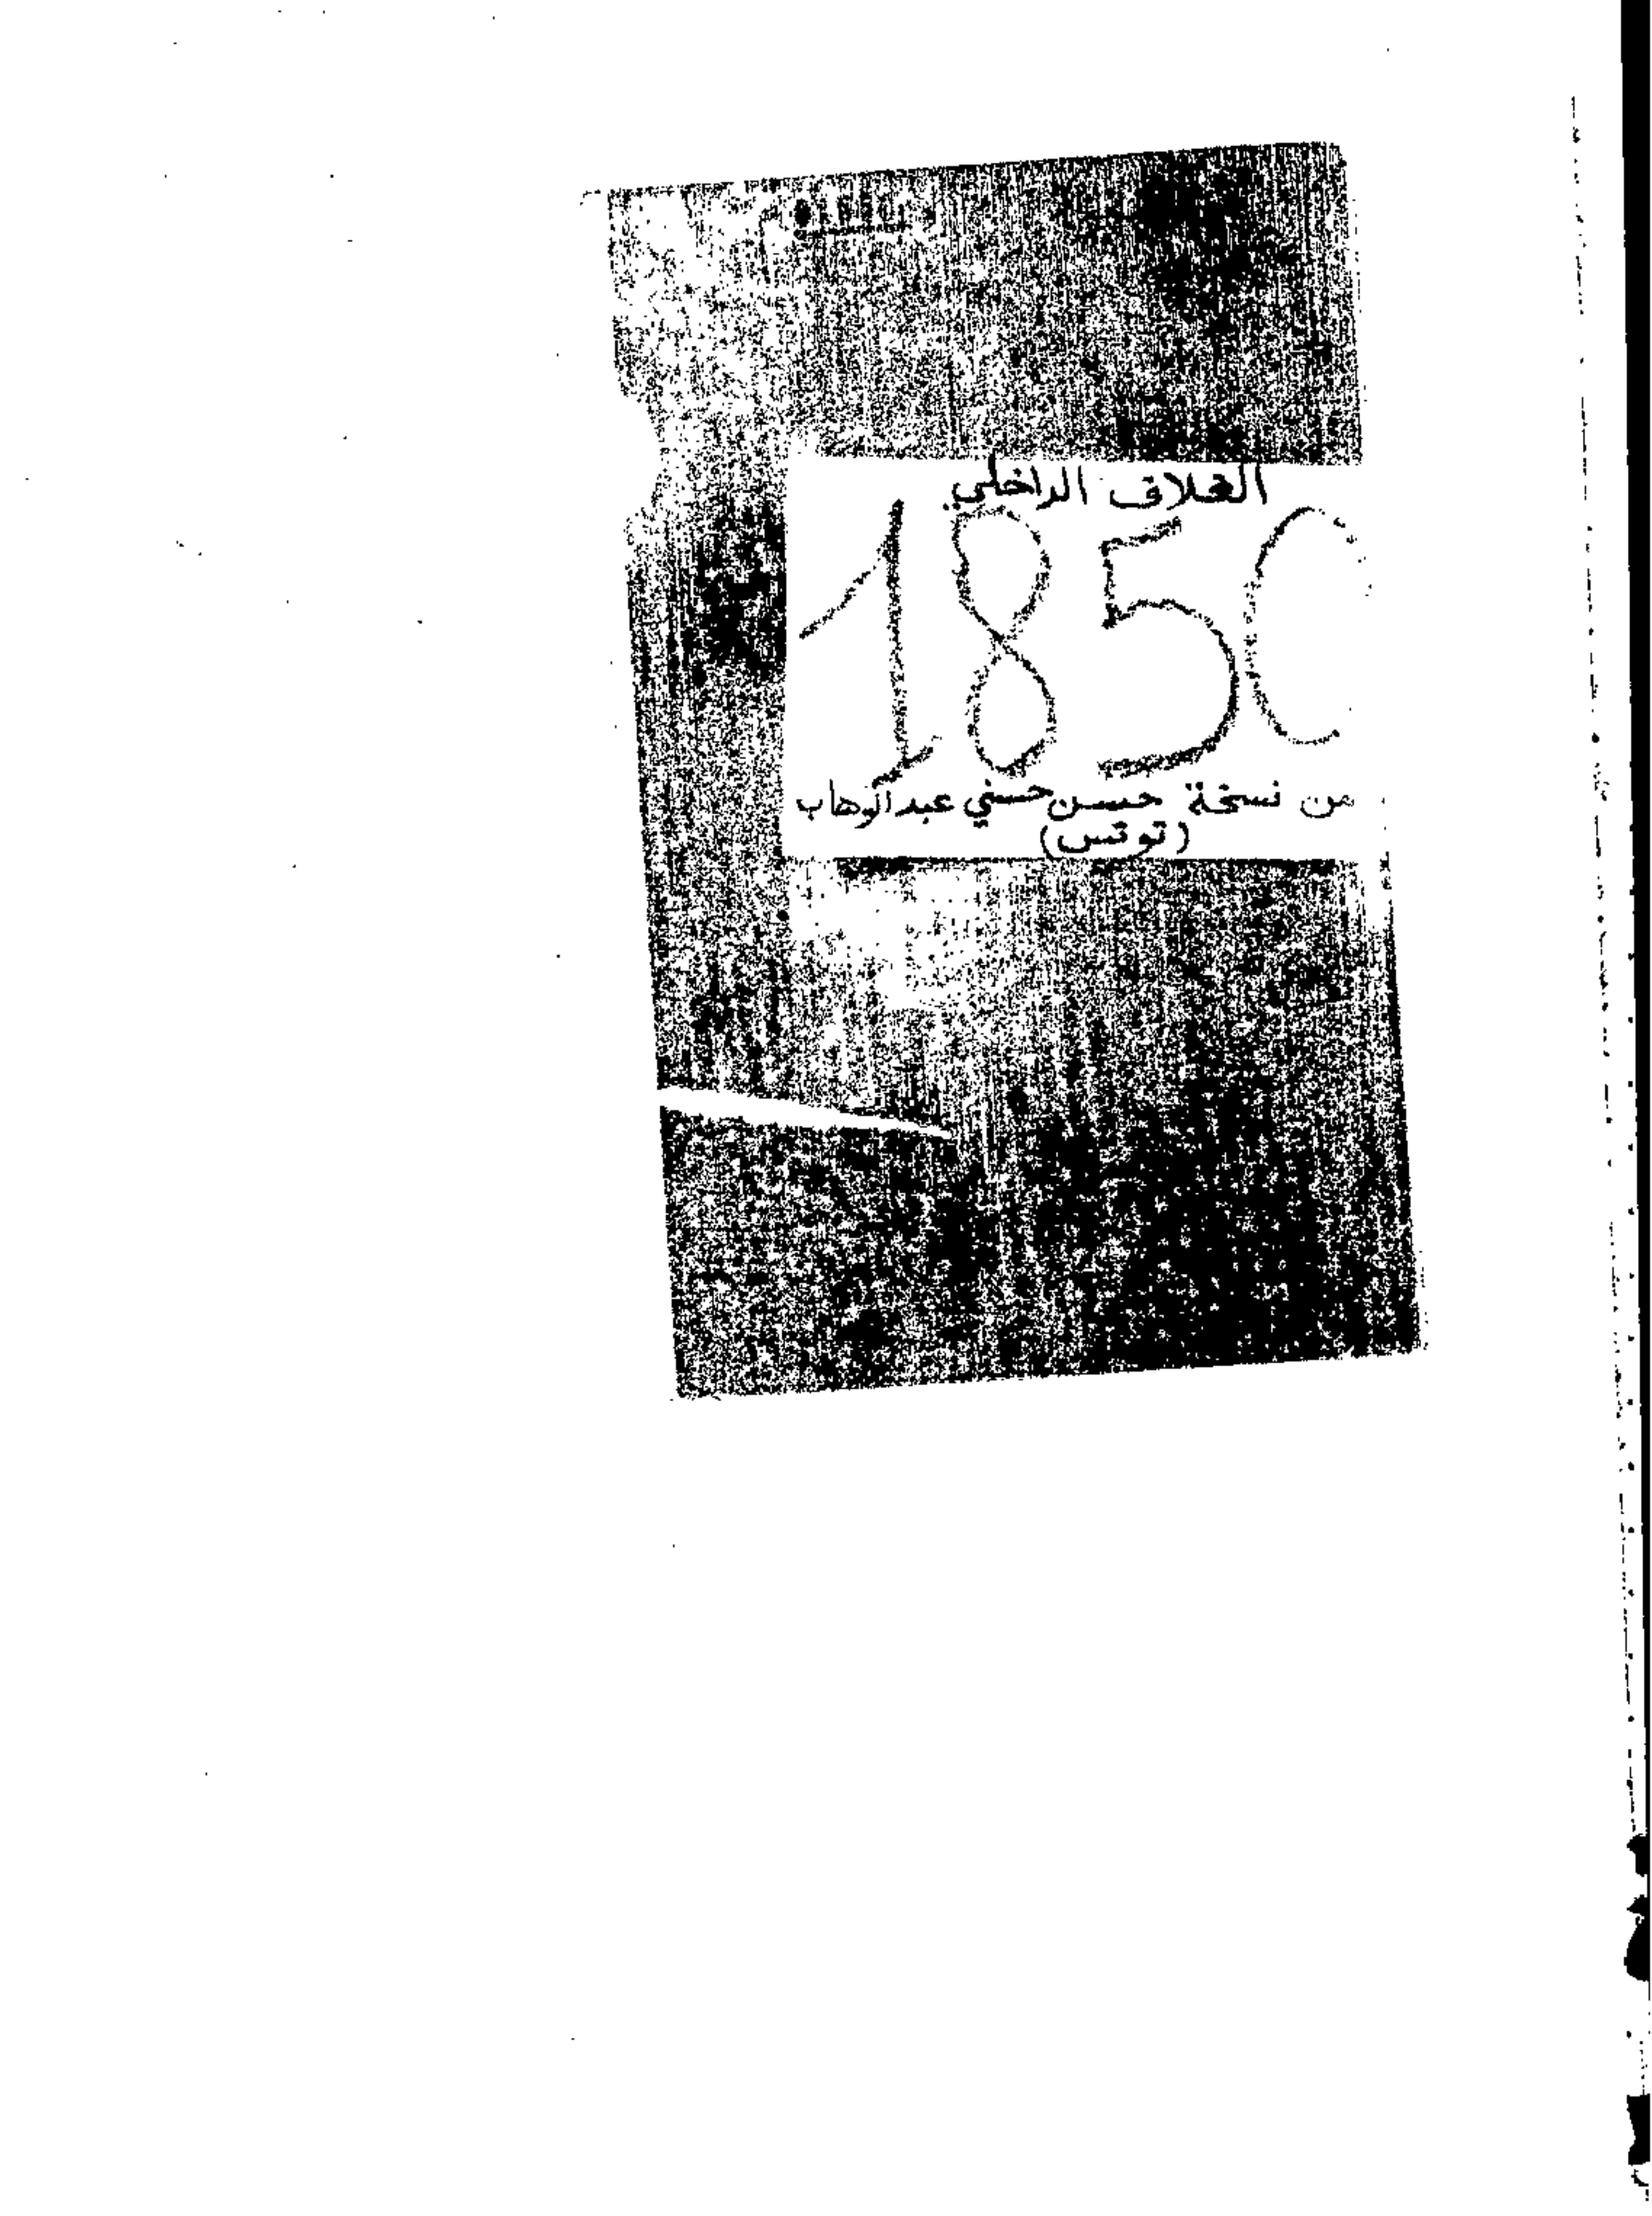 الغلاف الداخلي
1850
من نسخة حسن حسني عبد الوهاب
(تونس)